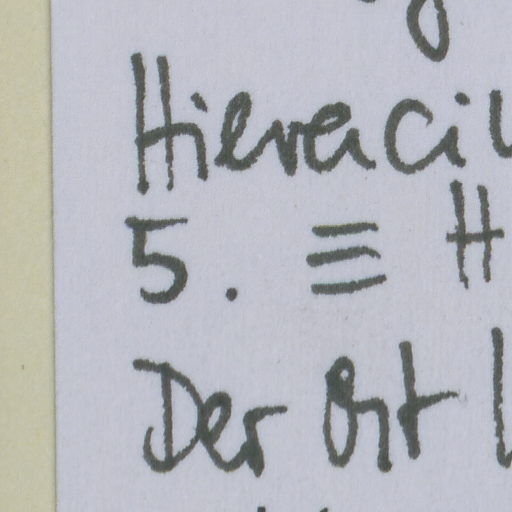 Hieraciu
5. ≡ H
Der Ort